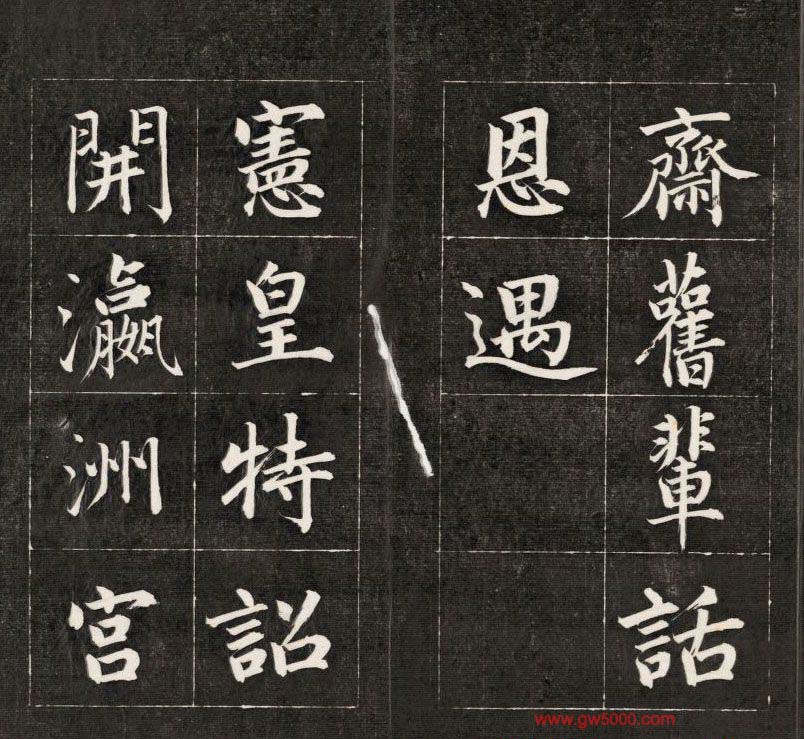 齋舊輩話
恩遇
憲皇特詔
開瀛洲宮
www.gw5000.com